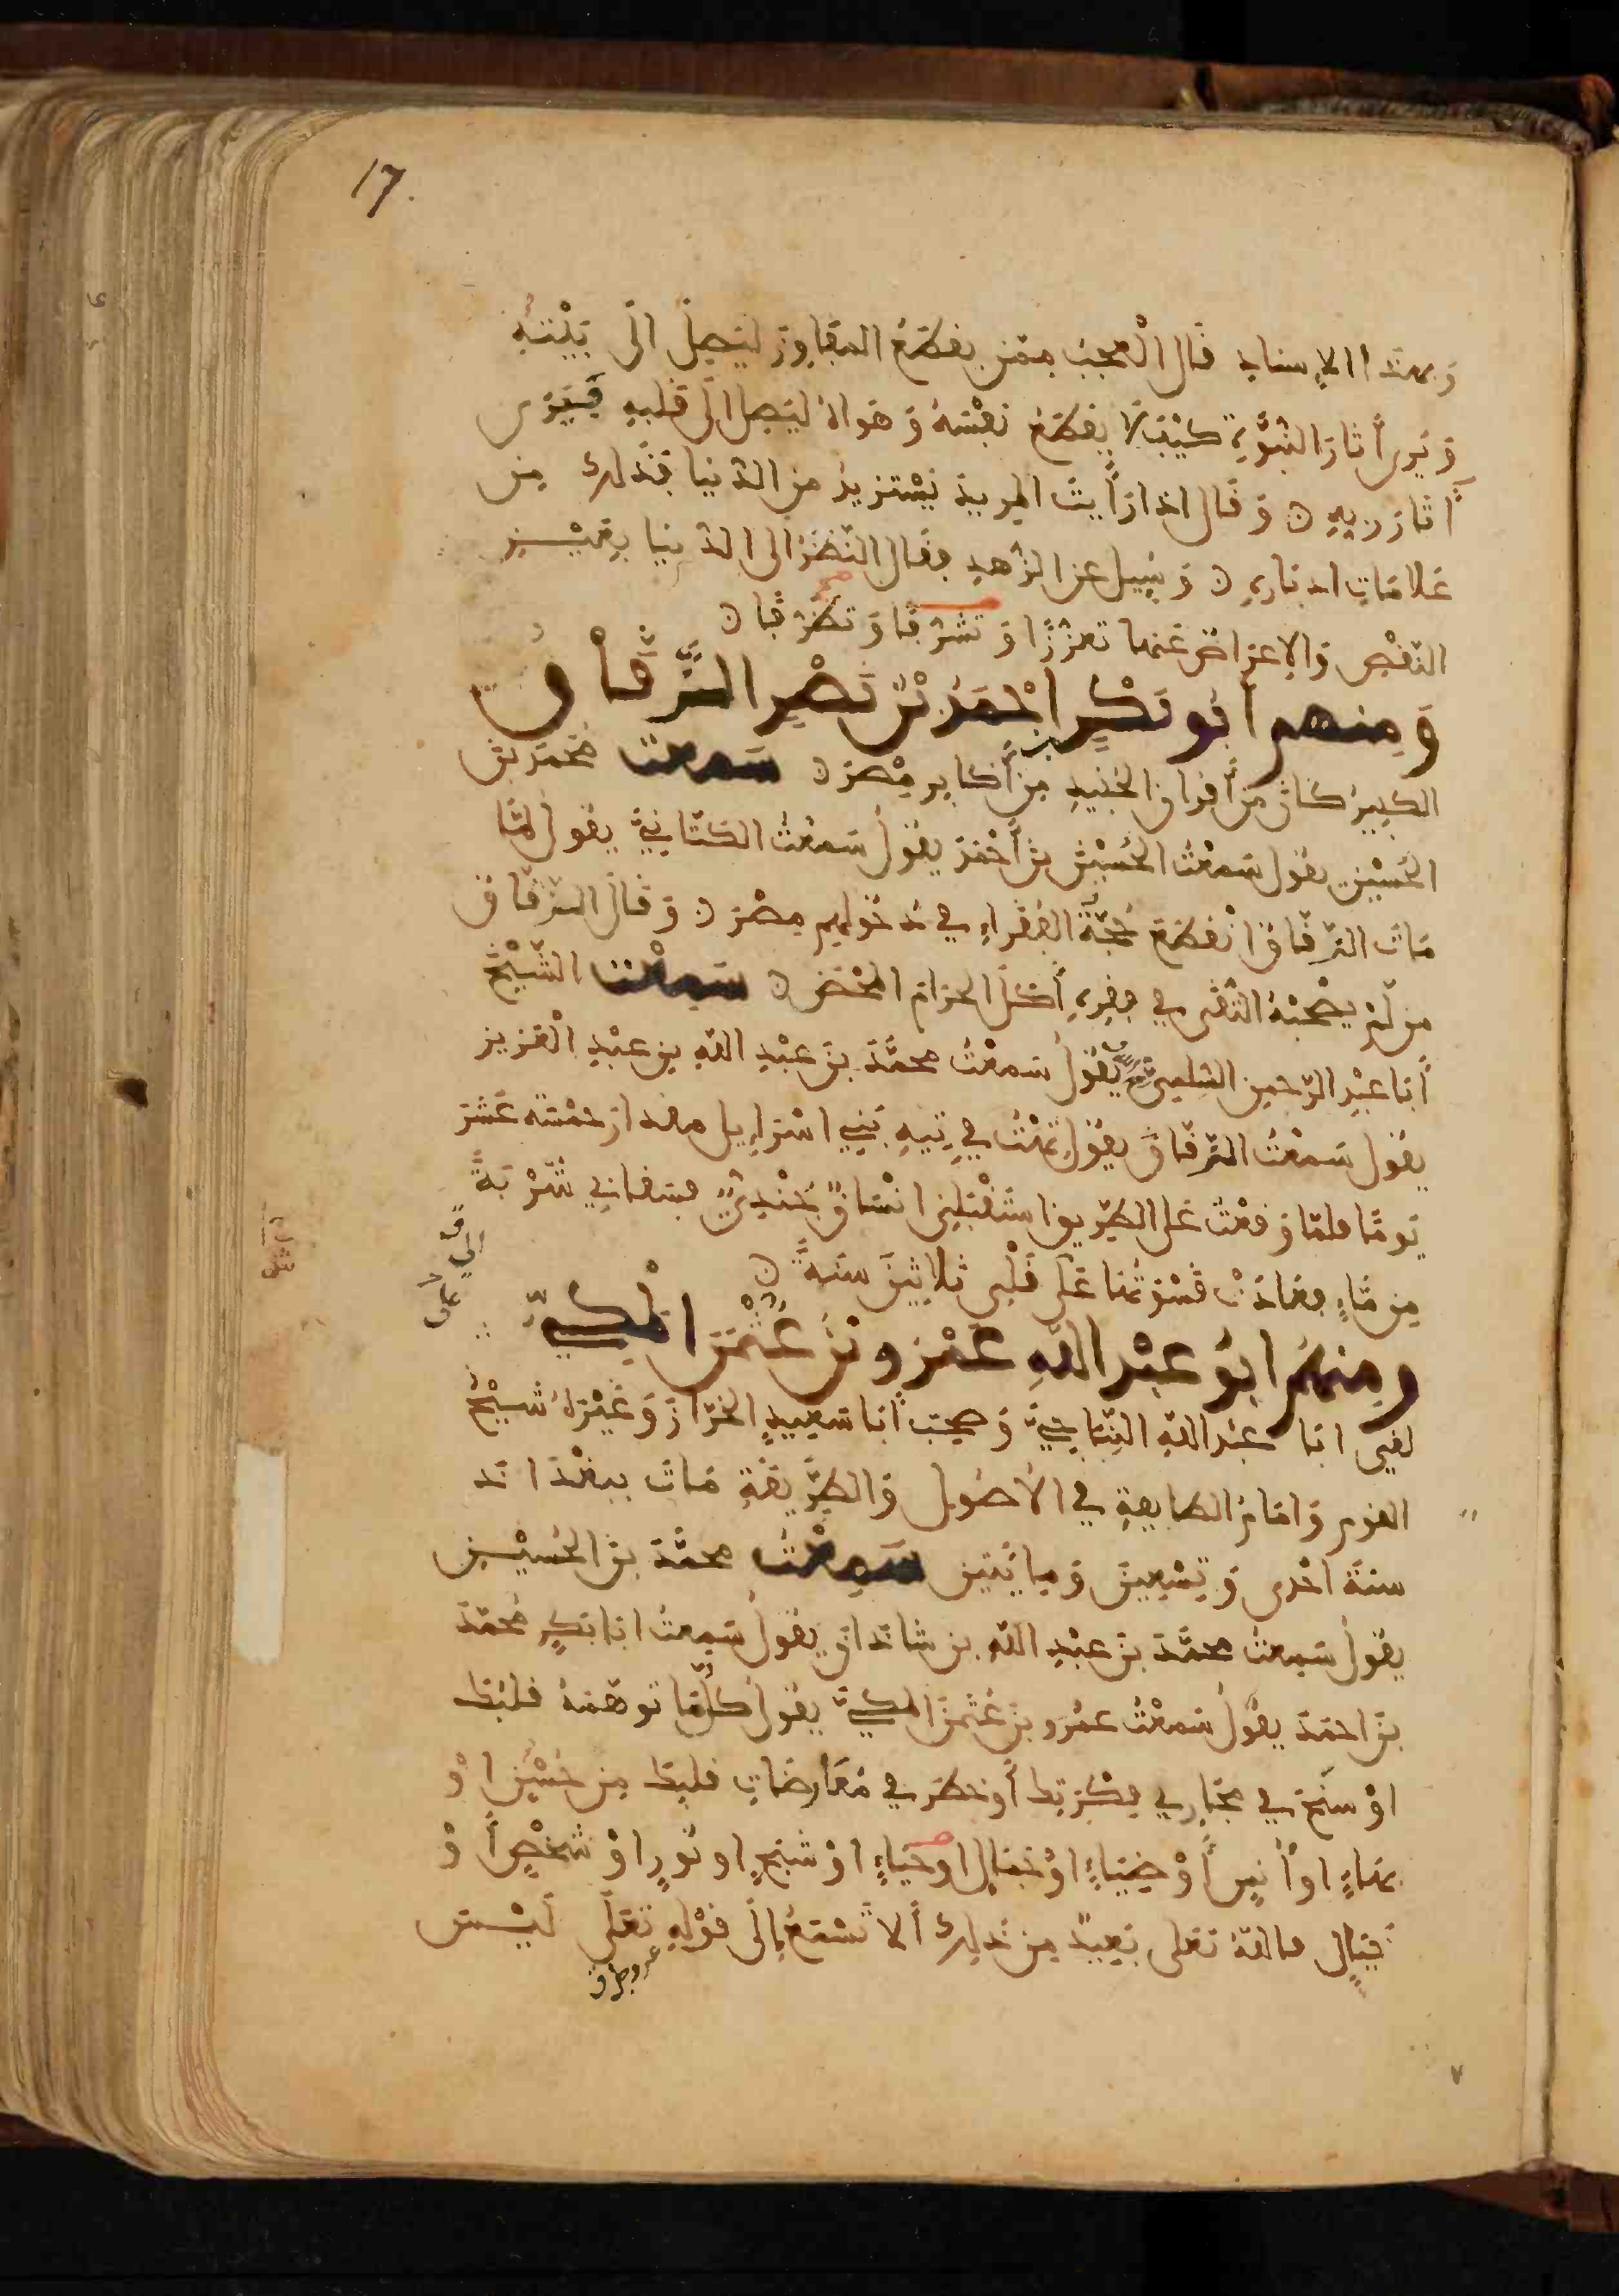 17.
وبهذا الإسناد قال العجب ممن يقطع المفاوز ليصل الى بيته
ويرى آثار النبوة كيف لا يقطع نفسه وهواه ليصل الى قلبه فيرى
آثار ربه ن وقال اذا رأيت المريد يستزيد من الدنيا فذلك من
علامات ادباره ن وسيل عن الزهد فقال النظر الى الدنيا بعين
النقص والاعراض عنها تعززا وتشرفا وتظرفا ن
ومنهم أبو بكر احمد بن نصر الزقاق
الكبير كان من أقران الجنيد من أكابر مصر ن سمعت محمد بن
الحسين يقول سمعت الحسين بن أحمد يقول سمعت الكتاني يقول لما
مات الزقاق انقطع حجة الفقراء في دخولهم مصر ن وقال الزقاق
من لم يصحبه التقى في فقره أكل الحرام المحض ن سمعت الشيخ
أبا عبد الرحمن السلمي يقول سمعت محمد بن عبد الله بن عبد العزيز
يقول سمعت الزقاق يقول تهت في تيه بني اسراءيل مقدار خمسة عشر
يوما فلما وقعت على الطريق استقبلني انسان جندي فسقاني شربة
من ماء فعادت قسوتها على قلبي ثلاثين سنة ن
ومنهم ابو عبد الله عمرو بن عثمن المكي
لقي ابا عبد الله النباجي وصحب أبا سعيد الخراز وغيره شيخ
القوم وامام الطايفة في الأصول والطريقة مات ببغداد
سنة احدى وتسعين ومايتين سمعت محمد بن الحسين
يقول سمعت محمد بن عبد الله بن شاذان يقول سمعت ابا بكر محمد
بن احمد يقول سمعت عمرو بن عثمن المكي يقول كلما توهمه قلبك
او سنح في مجاري فكرتك أو خطر في معارضات قلبك من حسن او
بهاء او أنس أو ضياء او جمال او حياء او شبح او نور او شخص أو
خيال فالله تعلى بعيد من ذلك ألا تسمع إلى قوله تعلى ليس